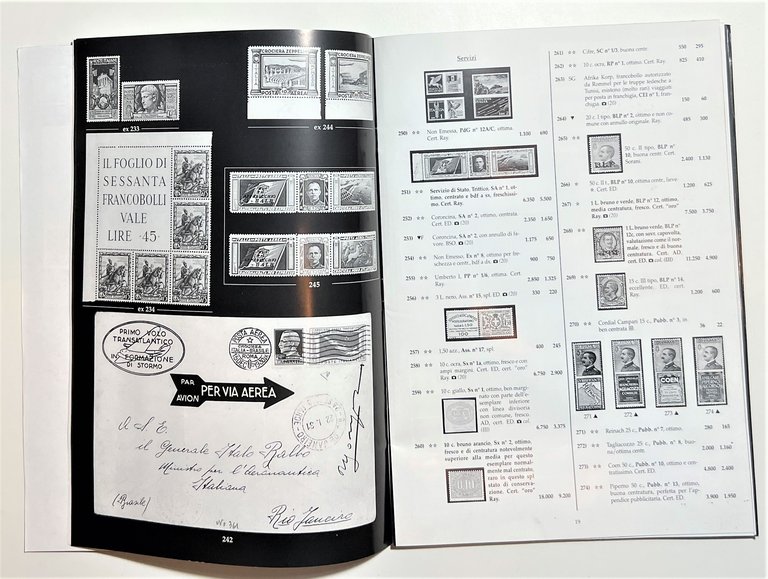 CROCIERA ZEPPELIN
CROCIERA ZEPPELIN
POSTA AEREA
POSTA AEREA
ex 233
ex 244
IL FOGLIO DI
SESSANTA
FRANCOBOLLI
VALE
LIRE 45
245
ex 234
PRIMO VOLO
TRANSATLANTICO
IN FORMAZIONE
DI STORMO
POSTA AEREA
CROCIERA
ITALIA-BRASILE
ROMA
PAR
AVION
PER VIA AEREA
A S. E.
il Generale Italo Balbo
Ministro per l'Aeronautica
Italiana
(Brasile)
Rio Janeiro
242
Servizi
250) ☆☆ Non Emessa, PdG n° 12A/C, ottima.
Cert. Ray. 1.100 690
251) ☆☆ Servizio di Stato, Trittico, SA n° 1, ot-
timo, centrato e bdf a sx, freschissi-
mo. Cert. Ray. 6.350 5.500
252) ☆☆ Coroncina, SA n° 2, ottimo, centrata.
Cert. ED. (20) 2.350 1.650
253) ▼F Coroncina, SA n° 2, con annullo di fa-
vore. RSD (20) 1.175 650
254) ☆☆ Non Emesso, Ex n° 8, ottimo per fre-
schezza e centr., bdf a dx (20)
255) ☆☆ Umberto I, PP n° 1/6, ottima. Cert.
Ray. 2.850 1.525
256) ☆☆ 3 L. nero, Ass. n° 15, spl. ED (20) 530 220
257) ☆☆ 1,50 azz., Ass. n° 17, spl. 600 245
258) ☆☆ 10 c. ocra, Sx n° 1a, ottimo, fresco e con
ampi margini. Cert. ED. e cert. "oro"
Ray. (20) 6.750 2.900
259) ☆☆ 10 c. giallo, Sx n° 1, ottimo, ben margi-
nato con parte dell'e-
semplare inferiore
con linea divisoria
non comune, fresco.
Cert. AD, cert. ED.
(20) 6.750 5.375
260) ☆☆ 10 c. bruno arancio, Sx n° 2, ottimo,
fresco e di centratura notevolmente
superiore alla media per questo
esemplare normal-
mente mal centrato;
raro in questo spl.
stato di conserva-
zione. Cert. "oro"
Ray. 18.000 9.200
261) ☆☆ Cifre, SC n° 1/3, buona centr. 550 295
262) ☆☆ 10 c. ocra, RP n° 1, ottimo. Cert. Ray. 825 410
263) SG Afrika Korp, francobollo autorizzato
da Rommel per le truppe tedesche a
Tunisi, esistono (molto rari) viaggiati
per posta in franchigia, CEI n° 1, fran-
chigia. (20) 150 60
264) ▼ 20 c. I tipo, BLP n° 2, ottimo e non co-
mune con annullo originale. Ray. 485 300
265) ☆☆ 50 c. II tipo, BLP n°
10; buona centr. Cert.
Sorani. 2.400 1.130
266) ☆ 50 c. II t., BLP n° 10, ottima centr., lieve
tl. Cert. ED. 1.200 625
267) ☆ 1 L. bruno e verde, BLP n° 12, ottimo,
media centratura, fresco. Cert. "oro"
Ray. 7.500 3.750
1 L. bruno verde, BLP n°
12b, con sovr. capovolta,
valutazione come il nor-
male, fresco e di buona
centratura. Cert. AD,
cert. ED. cal. (III) 11.250 4.900
15 c. III tipo, BLP n° 14,
eccellente. ED, cert.
Ray. 1.200 620
270) ☆☆ Cordial Campari 15 c., Pubb. n° 3, in
ben centrata 36 22
COEN
271 ▲ 272 ▲ 273 ▲ 274 ▲
271) ☆☆ Reinach 25 c., Pubb. n° 7, ottimo. 280 165
272) ☆☆ Tagliacozzo 25 c., Pubb. n° 8, buo-
na/ottima centr. 2.000 1.160
273) ☆☆ Coen 50 c., Pubb. n° 10, ottimo e cen-
tratissimo. Cert. ED. 4.800 2.400
274) ☆☆ Piperno 50 c., Pubb. n° 13, ottimo,
buona centratura, perfetta per l'ap-
pendice pubblicitaria. Cert. ED. 3.900 1.950
19